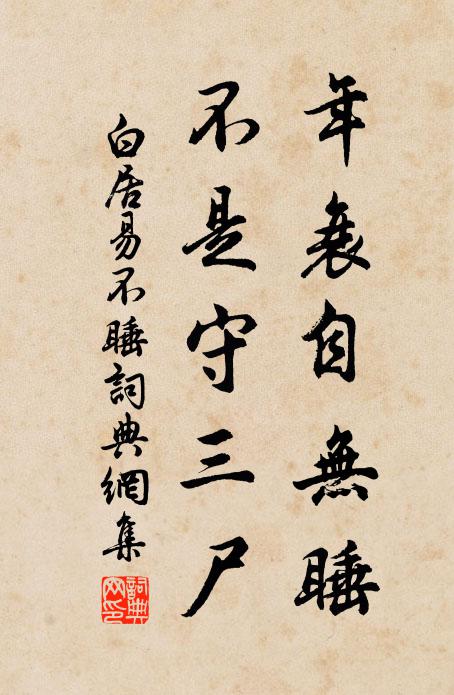 年衰自無睡
不是守三尸
白居易不睡詞典網集
詞典網印